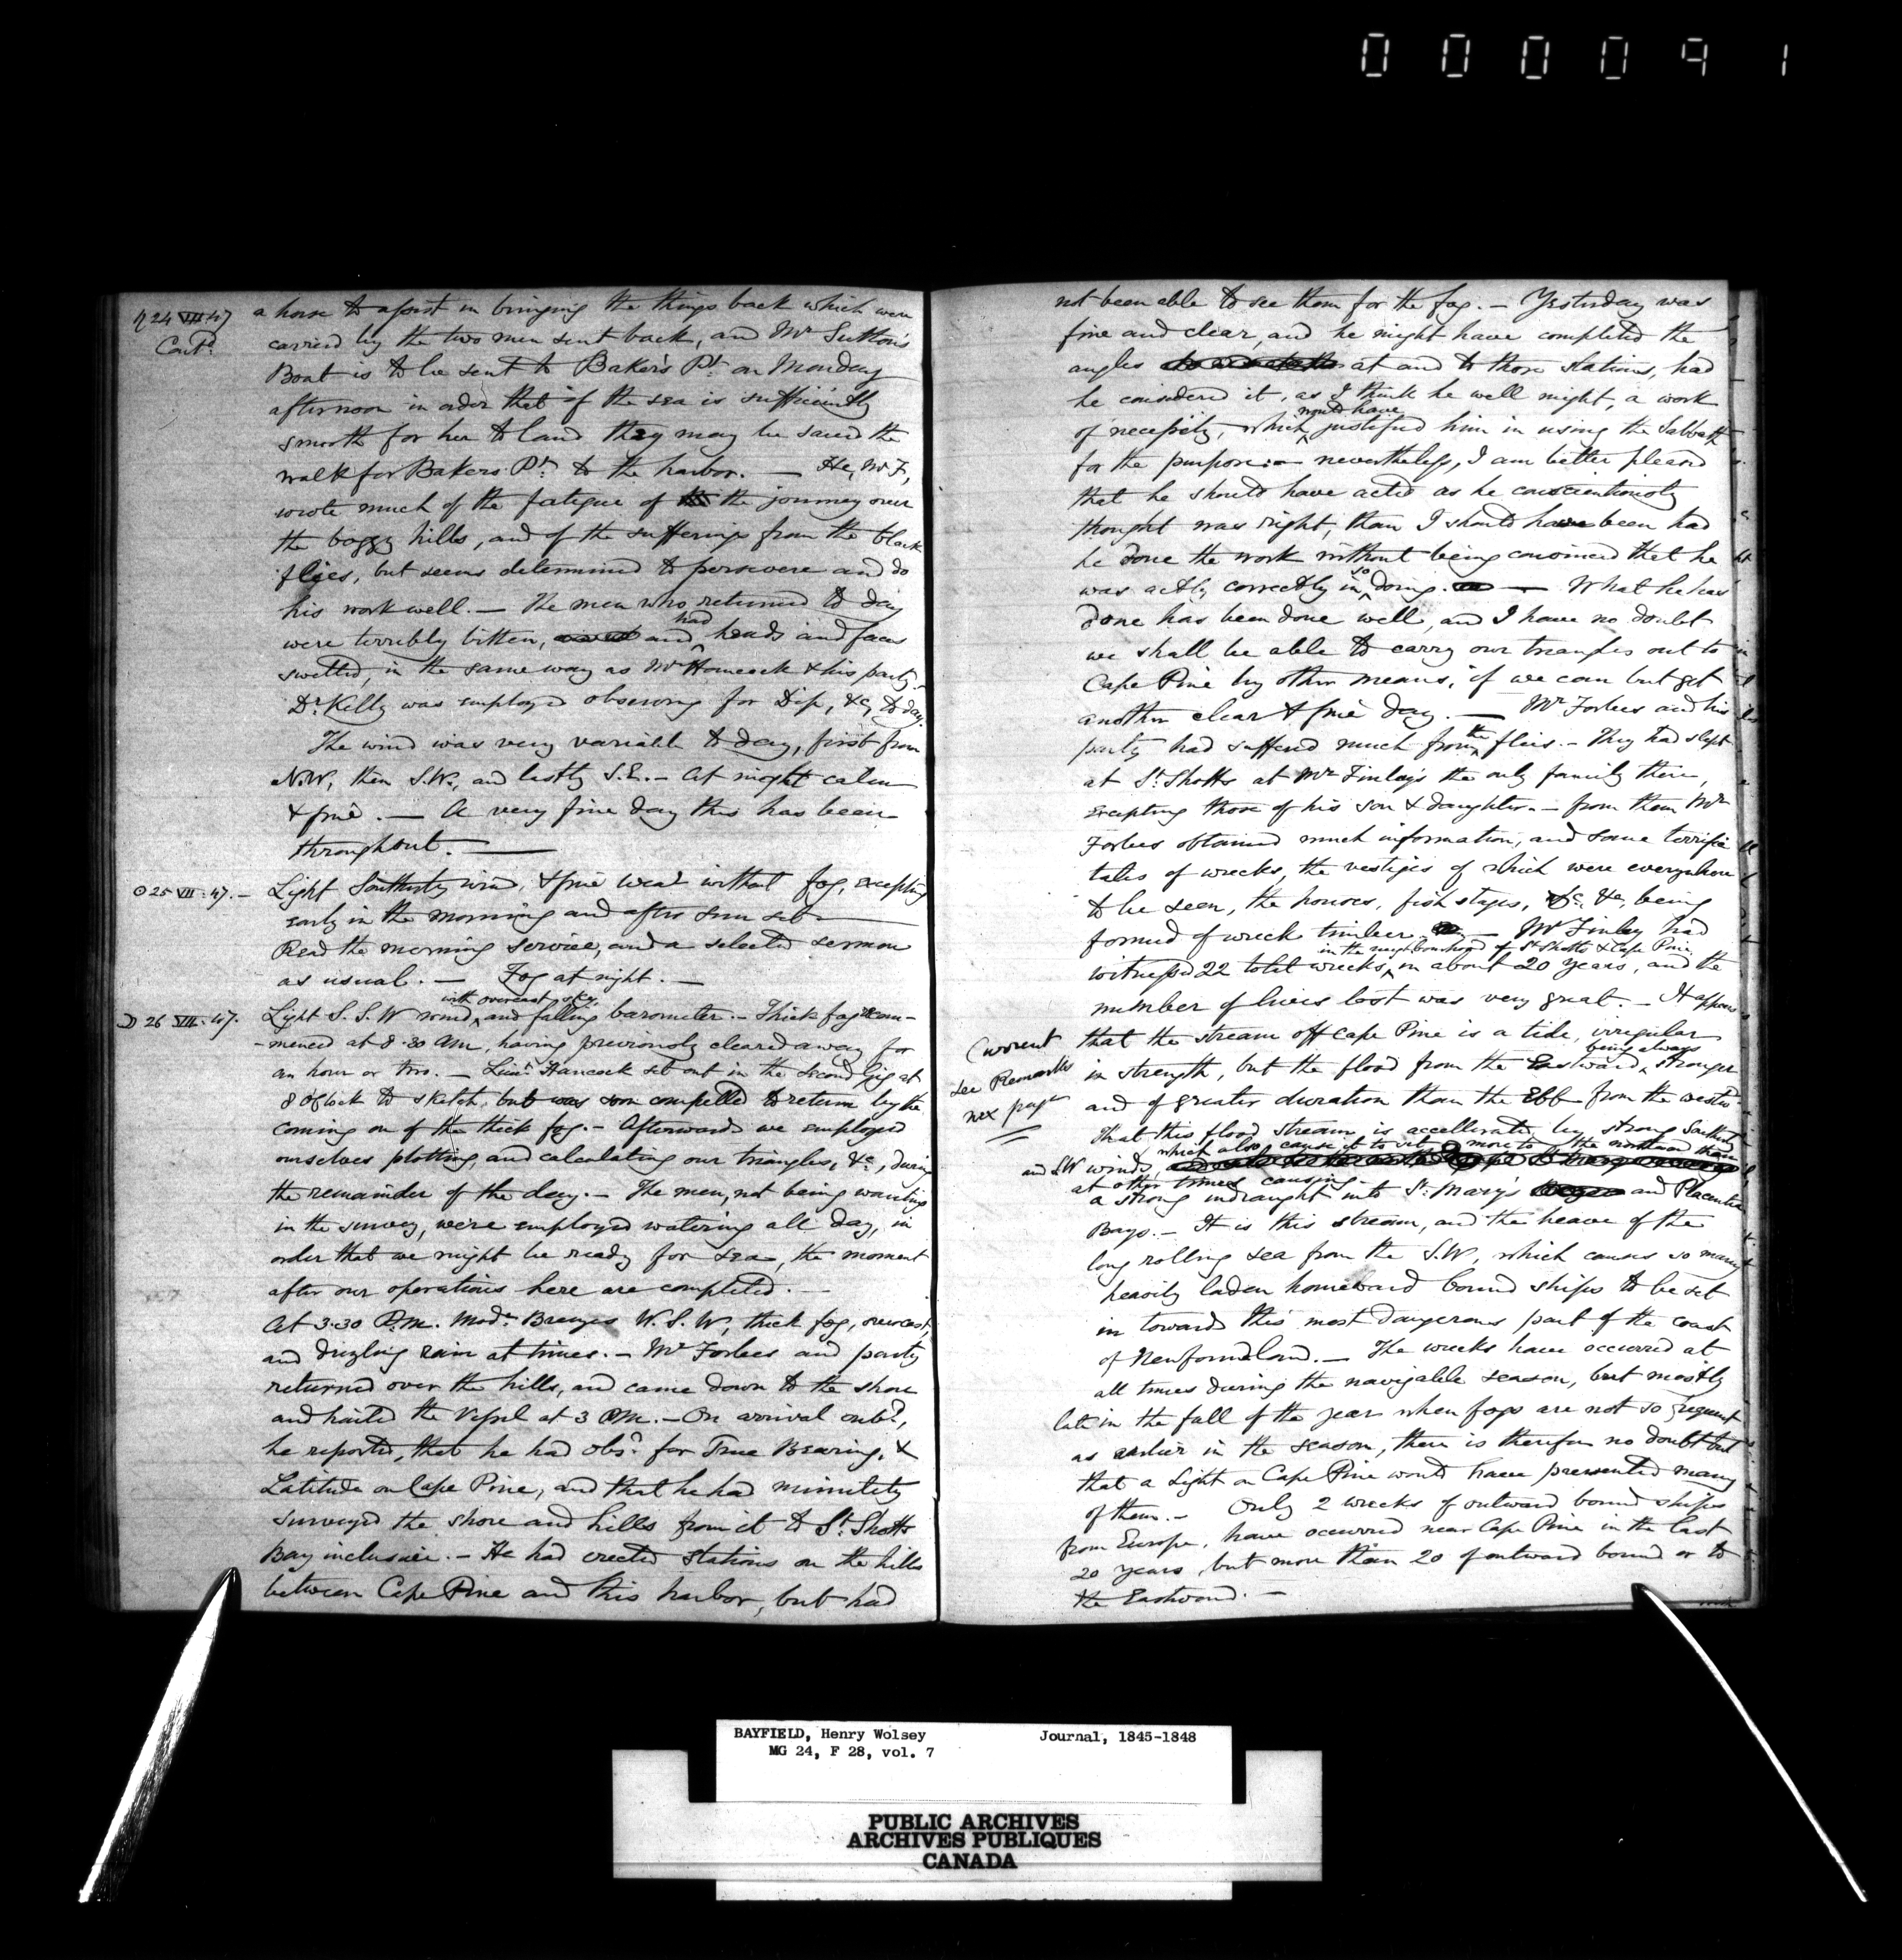 000091
♄ 24 VII: 47
Cont.d
a horse to assist in bringing the things back which were
carried by the two men sent back, and Mr Sutton's
Boat is to be sent to Baker's Pt. on Monday
afternoon in order that if the sea is sufficiently
smooth for her to land they may be saved the
walk for Bakers Pt. to the harbor. — He, Mr F,
wrote much of the fatigue of the journey over
the boggy hills, and of the sufferings from the black
flies, but seems determined to persevere and do
his work well. — The men who returned to day
were terribly bitten, and had heads and faces
swelled, in the same way as Mr Hancock & his party.
Dr. Kelly was employed observing for Dip, &c, to day.
The wind was very variable to day, first from
N.W, then S.W, and lastly S.E. — At night calm
& fine. — A very fine day this has been
throughout. —
☉ 25 VII: 47. —
Light Southerly wind, & fine wear without fog, excepting
early in the morning and after sun set —
Read the morning service, and a selected sermon
as usual. — Fog at night. —
☽ 26 VII: 47.
Light S.S.W wind, with overcast sky, and falling barometer. — Thick fog com-
-menced at 8.30 AM, having previously cleared away for
an hour or two. — Lieut. Hancock set out in the Second Gig at
8 O'Clock to sketch, but was soon compelled to return by the
coming on of the thick fog. — Afterwards we employed
ourselves plotting, and calculating our triangles, &c, during
the remainder of the day. — The men, not being wanting
in the survey, were employed watering all day, in
order that we might be ready for sea, the moment
after our operations here are completed. —
At 3.30 P.M. Modr. Breezes W.S.W, thick fog, overcast,
and drizling rain at times. — Mr Forbes and party
returned over the hills, and came down to the shore
and hailed the Vessel at 3 PM. — On arrival onbd,
he reported, that he had obsd. for True Bearing, &
Latitude on Cape Pine, and that he had minutely
surveyed the shore and hills from it to St. Shotts
Bay inclusive. — He had erected stations on the hills
between Cape Pine and this harbor, but had
not been able to see them for the fog. — Yesterday was
fine and clear, and he might have completed the
angles at and to those stations, had
he considered it, as I think he well might, a work
of necessity, which would have justified him in using the Sabbath
for the purpose: — nevertheless, I am better pleased
that he should have acted as he conscientiously
thought was right, than I should have been had
he done the work without being convinced that he
was actly correctly in so doing. — What he has
done has been done well, and I have no doubt
we shall be able to carry our triangles out to
Cape Pine by other means, if we can but get
another clear & fine day. — Mr Forbes and his
party had suffered much from the flies. — They had slept
at St. Shotts at Mr Finlay's the only family there,
excepting those of his son & daughter. — from them Mr
Forbes obtained much information, and some terrific
tales of wrecks, the vestiges of which were everywhere
to be seen, the houses, fish stages, &c, being
formed of wreck timber. — Mr Finlay had
in the neighbourhood of St Shotts & Cape Pine
witnessed 22 total wrecks, in about 20 years, and the
number of lives lost was very great. — It appears
Current
See Remarks
nex page
that the stream off Cape Pine is a tide, irregular
in strength, but the flood from the Eastward, being always stronger
and of greater duration than the Ebb from the westwd.
That this flood stream is accellerated by strong Southerly
and S.W winds, which also cause it to set more to the northward than
at other times causing
a strong indraught into St. Mary's and Placentia
Bays. — It is this stream, and the heave of the
long rolling sea from the S.W, which causes so many
heavily laden homeward bound ships to be set
in towards this most dangerous part of the coast
of Newfoundland. — The wrecks have occurred at
all times during the navigable season, but mostly
late in the fall of the year when fogs are not so frequent
as earlier in the season, there is therefore no doubt but
that a Light on Cape Pine would have prevented many
of them. — Only 2 wrecks of outward bound ships
from Europe, have occurred near Cape Pine in the last
20 years, but more than 20 of outward bound or to
the Eastward. —
BAYFIELD, Henry Wolsey Journal, 1845-1848
MG 24, F 28, vol. 7
PUBLIC ARCHIVES
ARCHIVES PUBLIQUES
CANADA